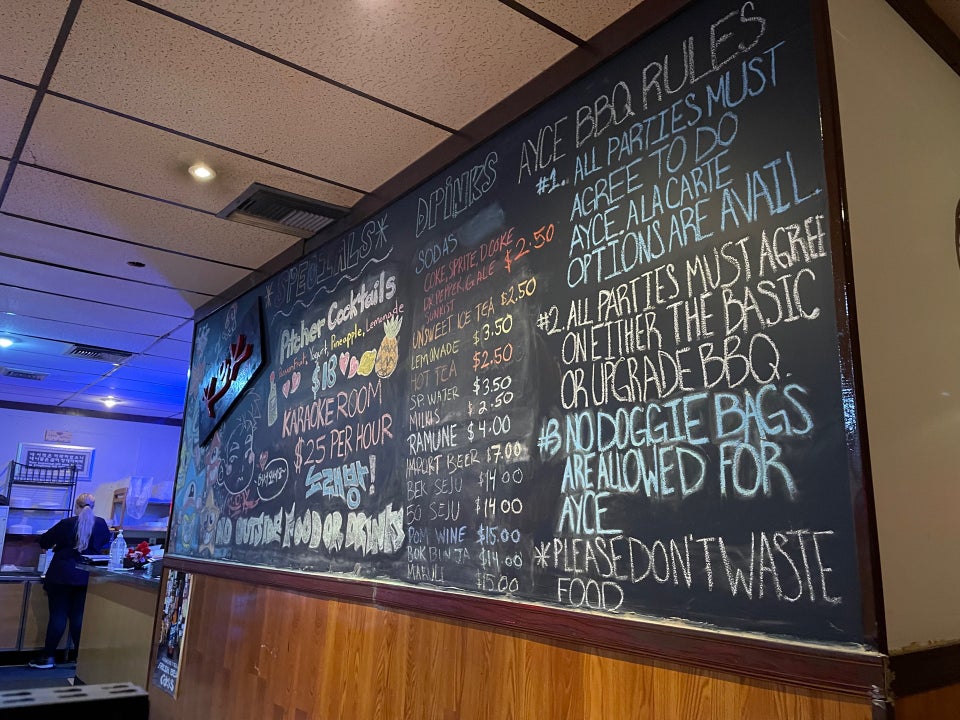 *SPECIALS*
Pitcher Cocktails
Passionfruit, Yogurt, Pineapple, Lemonade
$18
KARAOKE ROOM
$25 PER HOUR
노래방!
NO OUTSIDE FOOD OR DRINKS
DRINKS
SODAS
COKE, SPRITE, D.COKE
DR PEPPER, G.ALE $2.50
SUNKIST
UNSWEET ICE TEA $2.50
LEMONADE $3.50
HOT TEA $2.50
SP. WATER $3.50
MILKIS $2.50
RAMUNE $4.00
IMPORT BEER $7.00
BEK SEJU $14.00
50 SEJU $14.00
POM WINE $15.00
BOK BUN JA $14.00
MAKULI $15.00
AYCE BBQ RULES
#1. ALL PARTIES MUST
AGREE TO DO
AYCE. A LA CARTE
OPTIONS ARE AVAIL.
#2. ALL PARTIES MUST AGREE
ON EITHER THE BASIC
OR UPGRADE BBQ.
#3 NO DOGGIE BAGS
ARE ALLOWED FOR
AYCE
*PLEASE DON'T WASTE
FOOD